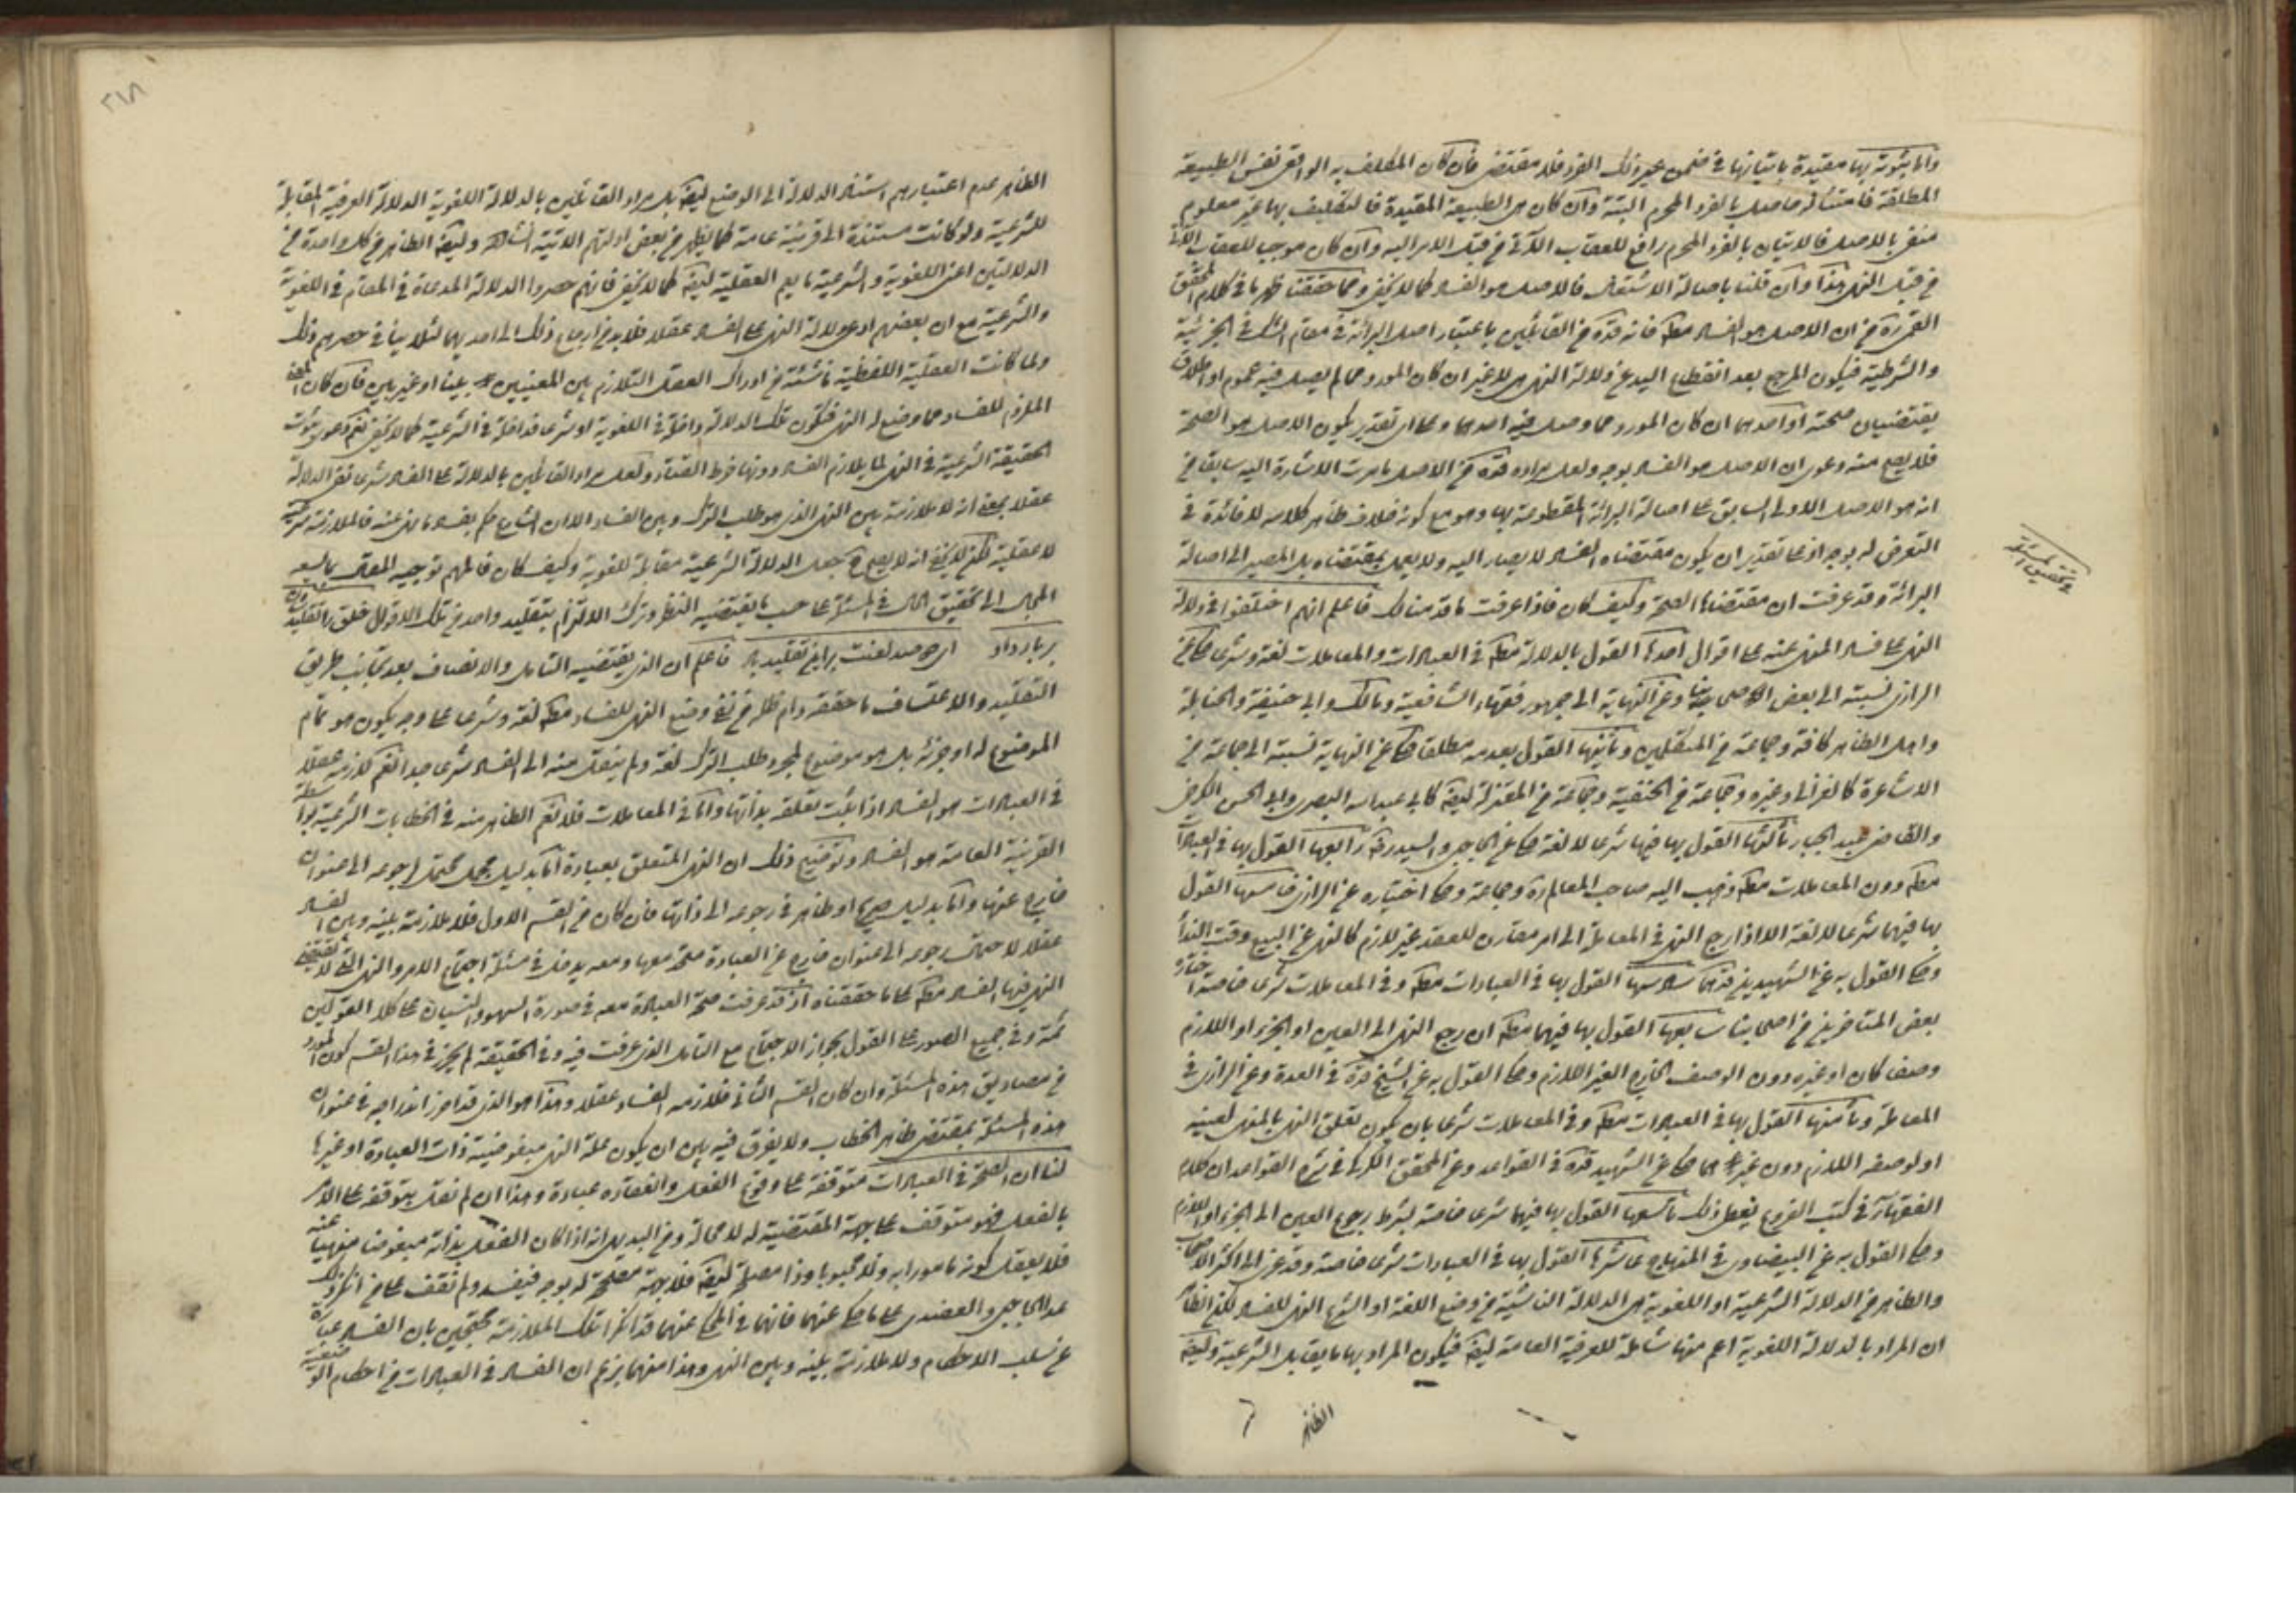 واما ثبوته بها مقيدة باتيانها في ضمن غير ذلك الفرد فلا مقتضى فان كان المكلف به الواقعي نفس الطبيعة
المطلقة فامتثاله حاصل بالفرد المحرم البتة وان كان هي الطبيعة المقيدة فالتكليف بها غير معلوم
منفى بالاصل فالاتيان بالفرد المحرم رافع للعقاب الآتي من قبل الامر اليه وان كان موجبا للعقاب الآتي
من قبل النهي هذا وان قلنا باصالة الاشتغال فالاصل هو الفساد كما لا يخفى ومما حققنا ظهر ما في كلام المحقق
القمي ره من ان الاصل هو الفساد مطلقا فانه قده من القائلين باعتبار اصل البرائة في مقام الشك في الجزئية
والشرطية فيكون المرجع بعد انقطاع اليد عن دلالة النهي هي لا غير ان كان المورد مما لم يصل فيه عموم او اطلاق
يقتضيان صحته او احدهما ان كان المورد مما وصل فيه احدهما وعلى اي تقدير يكون الاصل هو الصحة
فلا يصح منه دعوى ان الاصل هو الفساد بوجه ولعل مراده قده من الاصل ما مرت الاشارة اليه سابقا من
انه هو الاصل الاولى السابق على اصالة البرائة المقطوعة بها وهو مع كونه خلاف ظاهر كلامه لا فائدة في
التعرض له بوجه اذ على تقدير ان يكون مقتضاه الفساد لا يصار اليه ولا يعمل بمقتضاه بل المصير الى اصالة
البرائة وقد عرفت ان مقتضاها الصحة وكيف كان فاذا عرفت ما قدمناه لك فاعلم انهم اختلفوا في دلالة
النهي على فساد المنهي عنه على اقوال احدها القول بالدلالة مطلقا في العبادات والمعاملات لغة وشرعا حكي عن
الرازي نسبته الى بعض اصحابنا وعن النهاية الى جمهور فقهاء الشافعية ومالك وابي حنيفة والحنابلة
واهل الظاهر كافة وجماعة من المتكلمين وثانيها القول بعدمه مطلقا حكي عن النهاية نسبته الى جماعة من
الاشاعرة كالغزالي وغيره وجماعة من الحنفية وجماعة من المعتزلة ايضا كابي عبد الله البصري وابي الحسن الكرخي
والقاضي عبد الجبار ثالثها القول بها فيها شرعا لا لغة حكي عن الحاجبي والسيد ره رابعها القول بها في العبادات
مطلقا دون المعاملات مطلقا وذهب اليه صاحب المعالم ره وجماعة وحكي اختياره عن الرازي خامسها القول
بها فيهما شرعا لا لغة الا اذا رجع النهي في المعاملة الى امر مقارن للعقد غير لازم كالنهي عن البيع وقت النداء
وحكي القول به عن الشهيدين قدهما سادسها القول بها في العبادات مطلقا وفي المعاملات شرعا خاصة اختاره
بعض المتأخرين من اصحابنا سابعها القول بها فيهما مطلقا ان رجع النهي الى العين او الجزء او اللازم
وصفا كان او غيره دون الوصف الخارج الغير اللازم وحكي القول به عن الشيخ قده في العدة وعن الرازي في
المعاملة وثامنها القول بها في العبادات مطلقا وفي المعاملات شرعا بان يكون تعلق النهي بالمنهي لعينه
او لوصفه اللازم دون غيرهما حكي عن الشهيد قده في القواعد وعن المحقق الكركي في شرح القواعد ان كلام
الفقهاء في كتب الفروع يعطي ذلك تاسعها القول بها فيهما شرعا خاصة بشرط رجوع العين الى الجزء او اللازم
وحكي القول به عن البيضاوي في المنهاج عاشرها القول بها في العبادات شرعا خاصة وقد عزي الى اكثر الاصحاب
والظاهر من الدلالة الشرعية او اللغوية هي الدلالة الناشئة من وضع اللغة او الشرع النهي للفساد لكن الظاهر
ان المراد بالدلالة اللغوية اعم منها شاملة للعرفية العامة ايضا فيكون المراد بها ما يقابل الشرعية وايضا
الظاهر
وتحقيق المسئلة
٢١٨
الظاهر عدم اعتبارهم استناد الدلالة الى الوضع ايضا بل مراد القائلين بالدلالة اللغوية الدلالة العرفية المقابلة
للشرعية ولو كانت مستندة الى قرينة عامة كما يظهر من بعض ادلتهم الآتية وايضا الظاهر من كل واحدة من
الدلالتين اعني اللغوية والشرعية ما يعم العقلية ايضا كما لا يخفى فانهم حصروا الدلالة المدعاة في المقام في اللغوية
والشرعية مع ان بعضهم ادعى دلالة النهي على الفساد عقلا فلا بد من ارجاع ذلك الى احديهما لئلا ينافي حصرهم ذلك
ولما كانت العقلية اللفظية ناشئة من ادراك العقل التلازم بين المعنيين بينا او غير بين فان كان المعنى
الملزوم للفساد مما وضع له النهي فتكون تلك الدلالة داخلة في اللغوية او شرعا فداخلة في الشرعية كما لا يخفى نعم دعوى ثبوت
الحقيقة الشرعية في النهي لما يلازم الفساد دونها خرط القتاد ولعل مراد القائلين بالدلالة على الفساد شرعا نفي الدلالة
عقلا بمعنى انه لا ملازمة بين النهي الذي هو طلب الترك وبين الفساد الا ان الشارع حكم بفساد ما نهى عنه فالملازمة شرعية
لا عقلية لكن لا يخفى انه لا يصح ح جعل الدلالة الشرعية مقابلة للغوية وكيف كان فالمهم توجيه المقال بما يسعه
المجال الى تحقيق الحال في المسئلة على حسب ما يقتضيه النظر وترك الالتزام بتقليد واحد من تلك الاقوال خلق را تقليدشان
بر باد داد اي دو صد لعنت بر اين تقليد باد فاعلم ان الذي يقتضيه التامل والانصاف بعد تجانب طريق
التقليد والاعتساف ما حققه دام ظله من نفي وضع النهي للفساد مطلقا لغة وشرعا على وجه يكون هو تمام
الموضوع له او جزئه بل هو موضوع لمجرد طلب الترك لغة ولم ينقل منه الى الفساد شرعا جدا نعم لازمه عقلا
في العبادات هو الفساد اذا ثبت تعلقه بذاتها واما في المعاملات فلا نعم الظاهر منه في الخطابات الشرعية بواسطة
القرينة العامة هو الفساد وتوضيح ذلك ان النهي المتعلق بعبادة اما بدليل مجمل محتمل لرجوعه الى عنوان
خارج عنها واما بدليل صريح او ظاهر في رجوعه الى ذاتها فان كان من القسم الاول فلا ملازمة بينه وبين الفساد
عقلا لاحتمال رجوعه الى عنوان خارج عن العبادة متحد معها ومعه يدخل في مسئلة اجتماع الامر والنهي التي لا يقتضي
النهي فيها الفساد مطلقا على ما حققناه اذ قد عرفت صحة العبادة معه في صورة السهو والنسيان على كلا القولين
ثمة وفي جميع الصور على القول بجواز الاجتماع مع التامل الذي عرفت فيه وفي الحقيقة لم يحرز في هذا القسم كون المورد
من مصاديق هذه المسئلة وان كان القسم الثاني فلازمه الفساد عقلا وهذا هو الذي قد احرز اندراجه في عنوان
هذه المسئلة بمقتضى ظاهر الخطاب ولا يفرق فيه بين ان يكون علة النهي مبغوضية ذات العبادة او غيرها
لنا ان الصحة في العبادات متوقفة على وقوع الفعل وانعقاده عبادة وهذا ان لم نقل بتوقفه على الامر
بالفعل فهو متوقف على جهة المقتضية له لا محالة ومن البديهي انه اذا كان الفعل بذاته مبغوضا منهيا عنه
فلا يعقل كونه مامورا به ولا محبوبا وذا مصلحة ايضا فلا جهة مصلحة له بوجه فيفسد ولم نقف على من انكر ذلك
عدا الحاجبي والعضدي على ما حكي عنهما فانهما في المحكي عنهما قد انكرا تلك الملازمة محتجين بان الفساد عبارة
عن سلب الاحكام ولا ملازمة بينه وبين النهي وهذا منهما بزعم ان الفساد في العبادات من احكام الوضعية